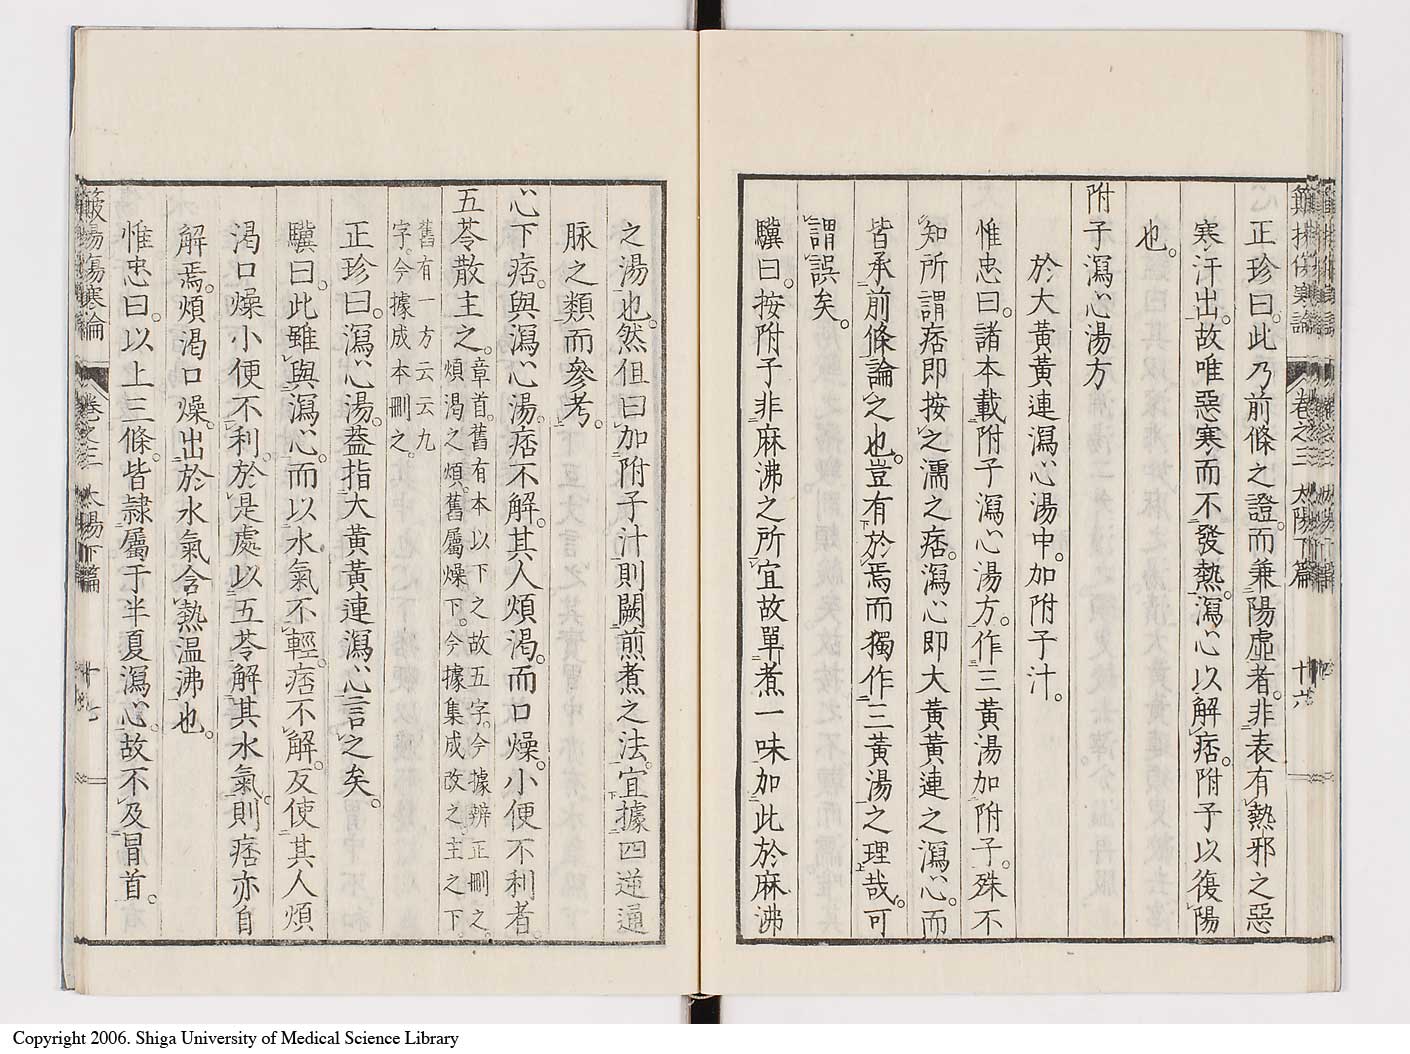 正珍曰。此乃前條之證。而兼陽虛者。非表有熱邪之惡
寒汗出。故唯惡寒而不發熱。瀉心以解痞。附子以復陽
也。
附子瀉心湯方
於大黃黃連瀉心湯中。加附子汁。
惟忠曰。諸本載附子瀉心湯方。作三黃湯加附子。殊不
知所謂痞即按之濡之痞。瀉心即大黃黃連之瀉心。而
皆承前條論之也。豈有於焉而獨作三黃湯之理哉。可
謂誤矣。
驥曰。按附子非麻沸之所宜故單煮一味加此於麻沸
之湯也。然但曰加附子汁則闕煎煮之法。宜據四逆通
脉之類而參考。
心下痞。與瀉心湯。痞不解。其人煩渴。而口燥。小便不利者。
五苓散主之。章首。舊有本以下之故五字。今據辨正刪之。
煩渴之煩。舊屬燥下。今據集成改之。主之下
舊有一方云云九
字。今據成本刪之。
正珍曰。瀉心湯。蓋指大黃黃連瀉心言之矣。
驥曰。此雖與瀉心。而以水氣不輕。痞不解。反使其人煩
渴口燥小便不利。於是處以五苓解其水氣。則痞亦自
解焉。煩渴口燥。出於水氣含熱温沸也。
惟忠曰。以上三條。皆隷屬于半夏瀉心。故不及冒首。
傷寒論 卷之三 太陽下篇 十六
傷寒論 卷之三 太陽下篇 十七
Copyright 2006. Shiga University of Medical Science Library